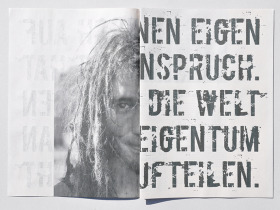 NEN EIGEN
NSPRUCH.
DIE WELT
EIGENTUM
UFTEILEN.